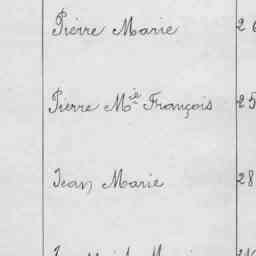 Pierre Marie 2
Pierre Mie François 25
Jean Marie 28